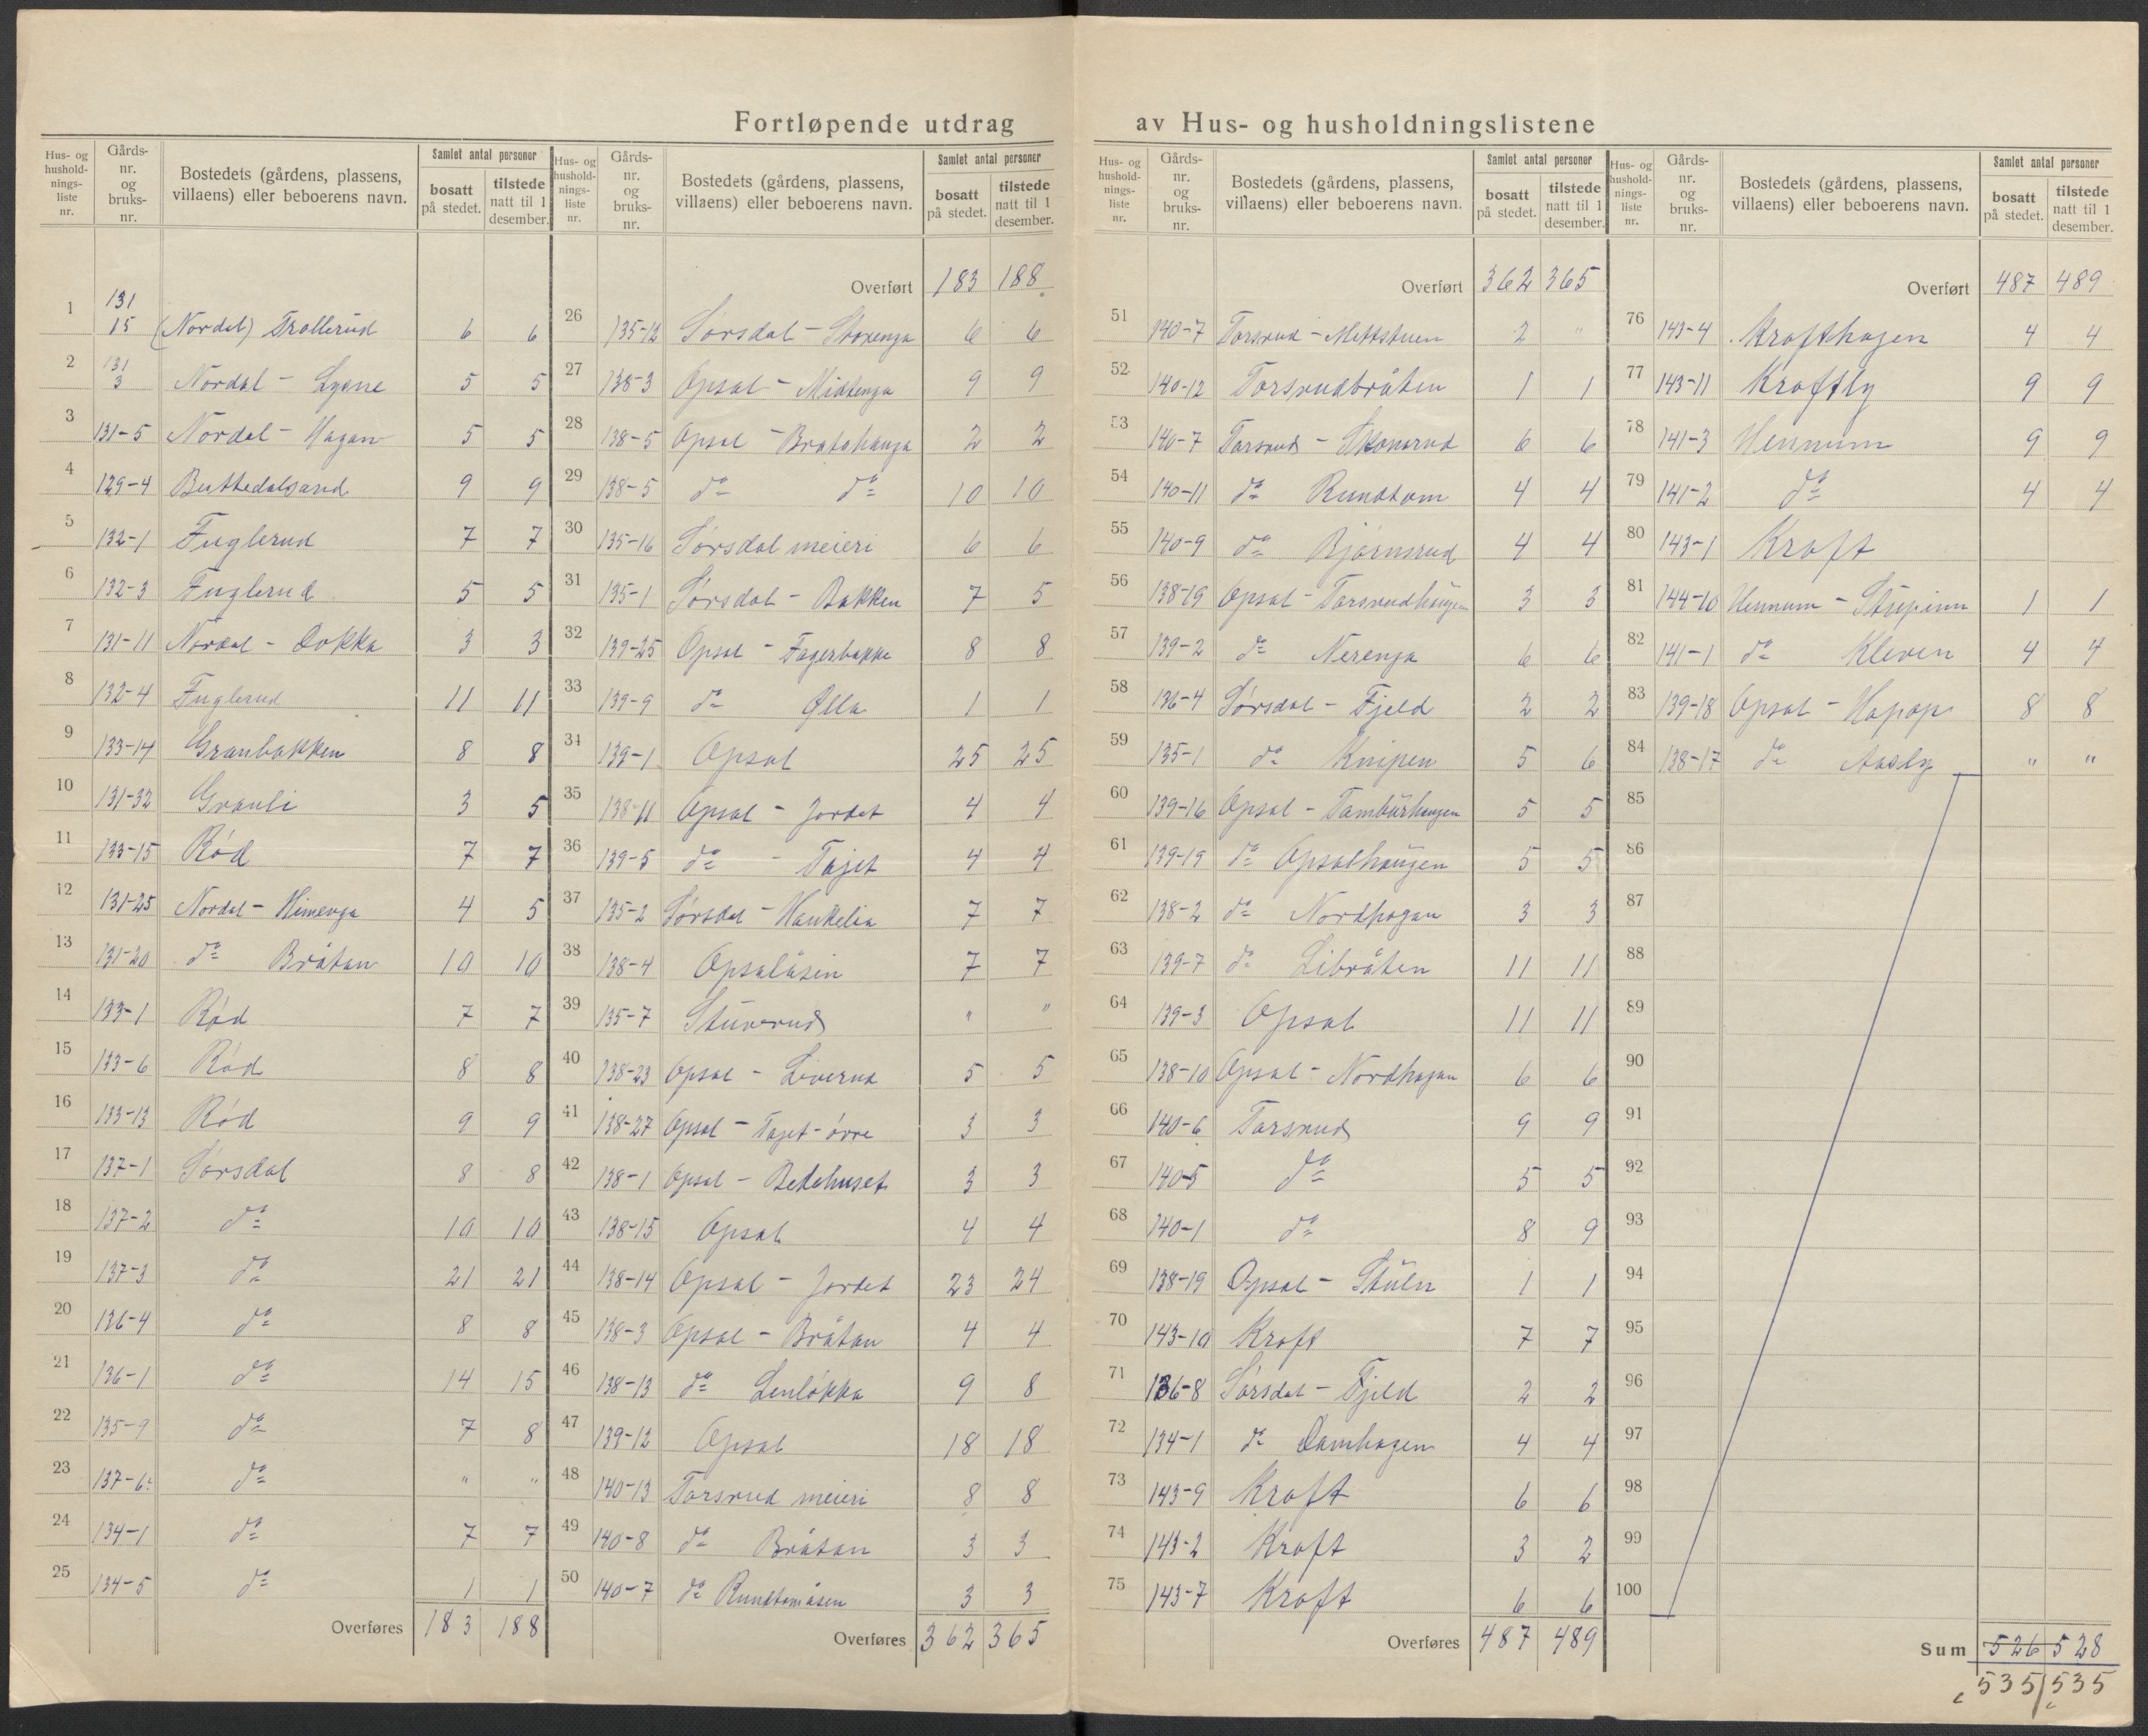 Fortløpende utdrag av Hus- og husholdningslistene
Hus- og hushold-nings-liste nr. | Gårds-nr. og bruks-nr. | Bostedets (gårdens, plassens, villaens) eller beboerens navn. | Samlet antal personer bosatt på stedet. | tilstede natt til 1 desember.
1 131 15 (Nordal) Trollerud 6 6
2 131 3 Nordal - Lysne 5 5
3 131-5 Nordal - Hagan 5 5
4 129-4 Buttedalsrud 9 9
5 132-1 Fuglerud 7 7
6 132-3 Fuglerud 5 5
7 131-11 Nordal - Dokka 3 3
8 132-4 Fuglerud 11 11
9 133-14 Granbakken 8 8
10 131-32 Granli 3 5
11 133-15 Rød 7 7
12 131-25 Nordal - Himenga 4 5
13 131-20 do Bråtan 10 10
14 133-1 Rød 7 7
15 133-6 Rød 8 8
16 133-13 Rød 9 9
17 137-1 Sørsdal 8 8
18 137-2 do 10 10
19 137-3 do 21 21
20 136-4 do 8 8
21 136-1 do 14 15
22 135-9 do 7 8
23 137-6 do " "
24 134-1 do 7 7
25 134-5 do 1 1
Overføres 183 188
Hus- og hushold-nings-liste nr. | Gårds-nr. og bruks-nr. | Bostedets (gårdens, plassens, villaens) eller beboerens navn. | Samlet antal personer bosatt på stedet. | tilstede natt til 1 desember.
Overført 183 188
26 135-12 Sørsdal - Storenga 6 6
27 138-3 Opsal - Midtenga 9 9
28 138-5 Opsal - Bratahauga 2 2
29 138-5 do do 10 10
30 135-16 Sørsdal meieri 6 6
31 135-1 Sørsdal - Bakken 7 5
32 139-25 Opsal - Fagerbakke 8 8
33 139-9 do Ølla 1 1
34 139-1 Opsal 25 25
35 138-11 Opsal - Jordet 4 4
36 139-5 do - Tajet 4 4
37 135-2 Sørsdal - Haukelia 7 7
38 138-4 Opsalåsen 7 7
39 135-7 Stuverud " "
40 138-23 Opsal - Liverud 5 5
41 138-27 Opsal - Tajet - øvre 3 3
42 138-1 Opsal - Bedehuset 3 3
43 138-15 Opsal 4 4
44 138-14 Opsal - Jordet 23 24
45 138-3 Opsal - Bråtan 4 4
46 138-13 do Lenløkka 9 8
47 139-12 Opsal 18 18
48 140-13 Torsrud meieri 8 8
49 140-8 do Bråtan 3 3
50 140-7 do Rundtomåsen 3 3
Overføres 362 365
Hus- og hushold-nings-liste nr. | Gårds-nr. og bruks-nr. | Bostedets (gårdens, plassens, villaens) eller beboerens navn. | Samlet antal personer bosatt på stedet. | tilstede natt til 1 desember.
Overført 362 365
51 140-7 Torsrud - Mettstuen 2 "
52 140-12 Torsrudbråten 1 1
53 140-7 Torsrud - Skonsrud 6 6
54 140-11 do Rundtom 4 4
55 140-9 do Bjørnsrud 4 4
56 138-19 Opsal - Torsrudhaugen 3 3
57 139-2 do Nerenga 6 6
58 136-4 Sørsdal - Fjeld 2 2
59 135-1 do Knipen 5 6
60 139-16 Opsal - Tamburhaugen 5 5
61 139-19 do Opsalhaugen 5 5
62 138-2 do Nordhagan 3 3
63 139-7 do Libråten 11 11
64 139-3 Opsal 11 11
65 138-10 Opsal - Nordhagan 6 6
66 140-6 Torsrud 9 9
67 140-5 do 5 5
68 140-1 do 8 9
69 138-19 Opsal - Stuln 1 1
70 143-10 Kroft 7 7
71 136-8 Sørsdal - Fjeld 2 2
72 134-1 do Damhagen 4 4
73 143-9 Kroft 6 6
74 143-2 Kroft 3 2
75 143-7 Kroft 6 6
Overføres 487 489
Hus- og hushold-nings-liste nr. | Gårds-nr. og bruks-nr. | Bostedets (gårdens, plassens, villaens) eller beboerens navn. | Samlet antal personer bosatt på stedet. | tilstede natt til 1 desember.
Overført 487 489
76 143-4 Krofthagen 4 4
77 143-11 Kroftly 9 9
78 141-3 Hennum 9 9
79 141-2 do 4 4
80 143-1 Kroft
81 144-10 Hennum - 1 1
82 141-1 do Kleven 4 4
83 139-18 Opsal - 8 8
84 138-17 do Aasly " "
85
86
87
88
89
90
91
92
93
94
95
96
97
98
99
100
Sum 526 528
535 535